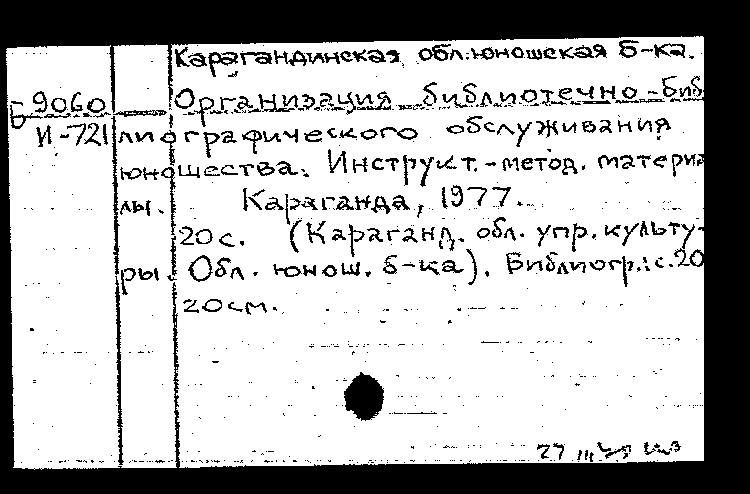 Карагандинская обл. юношеская б-ка.
Б 9060 Организация библиотечно-биб
И-721 лиографического обслуживания
юношества. Инструкт.-метод. материа
лы. Караганда, 1977.
20 с. (Караганд. обл. упр. культу-
ры. Обл. юнош. б-ка). Библиогр.: с. 20
20 см.
27